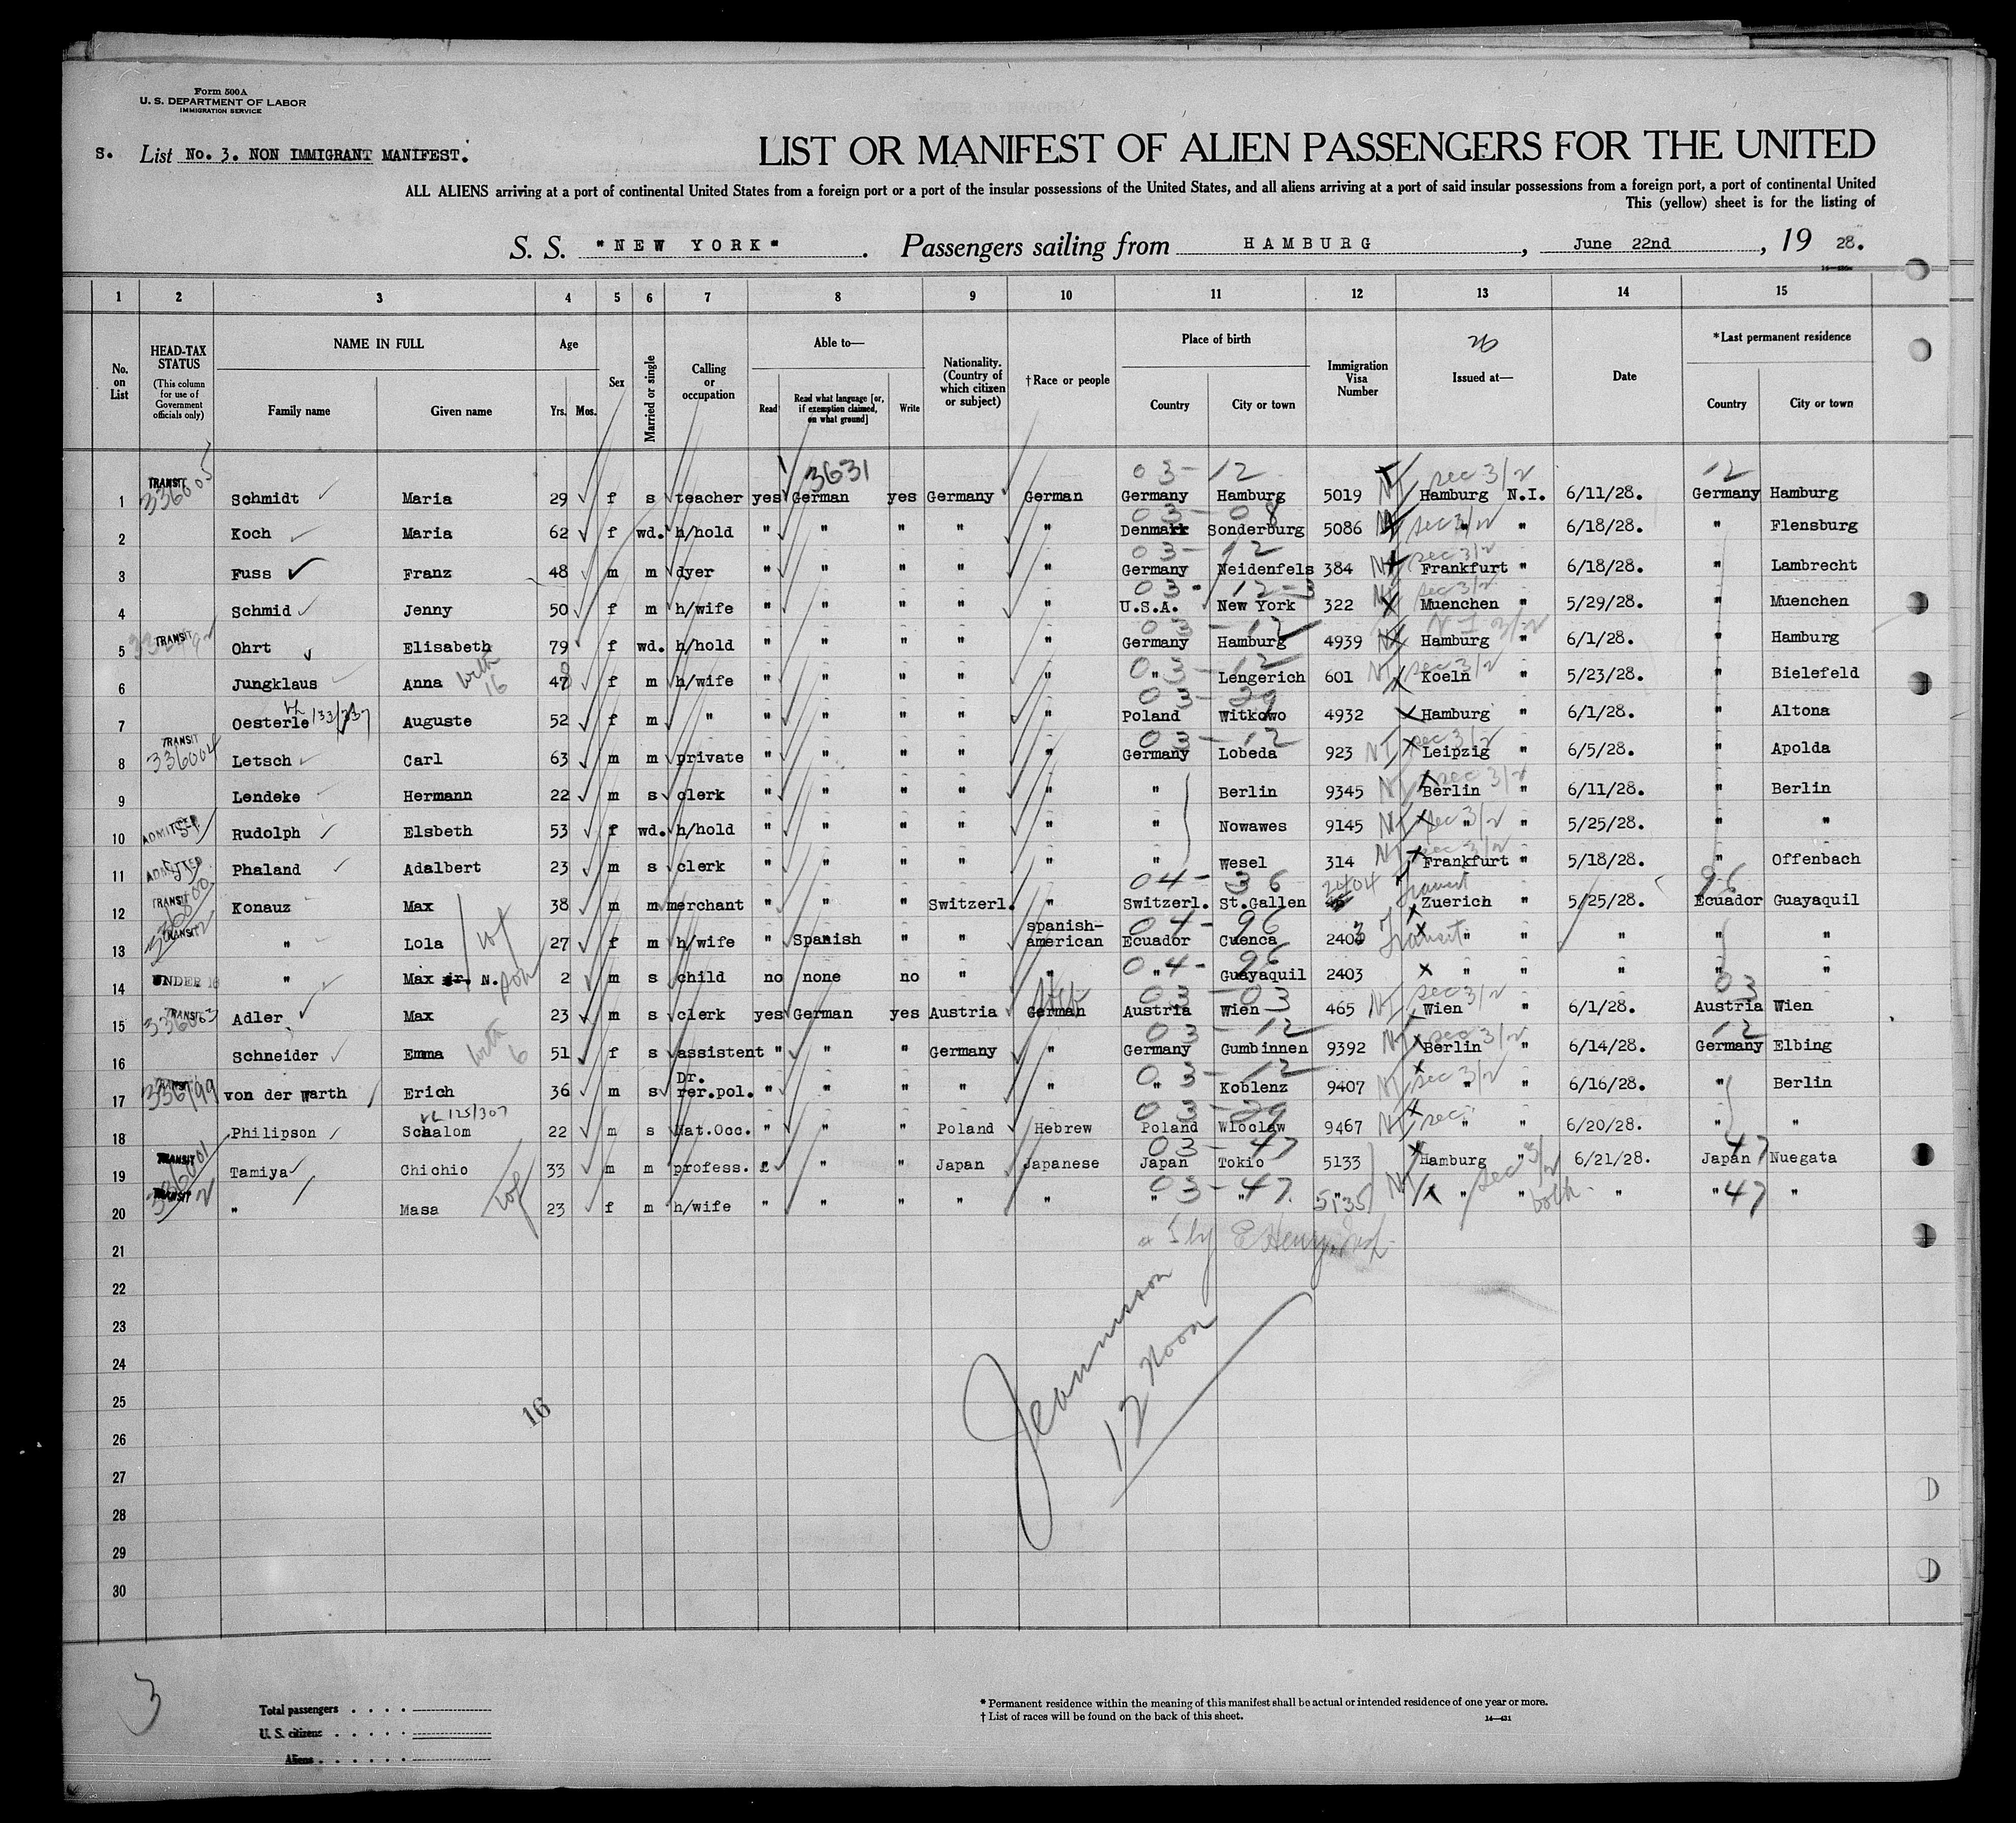 Form 500A
U. S. DEPARTMENT OF LABOR
IMMIGRATION SERVICE
S. List No. 3. NON IMMIGRANT MANIFEST.
LIST OR MANIFEST OF ALIEN PASSENGERS FOR THE UNITED
ALL ALIENS arriving at a port of continental United States from a foreign port or a port of the insular possessions of the United States, and all aliens arriving at a port of said insular possessions from a foreign port, a port of continental United
This (yellow) sheet is for the listing of
S. S. "NEW YORK". Passengers sailing from HAMBURG, June 22nd, 19 28.
1 2 3 4 5 6 7 8 9 10 11 12 13 14 15
No. on List HEAD-TAX STATUS (This column for use of Government officials only) NAME IN FULL Family name Given name Age Yrs. Mos. Sex Married or single Calling or occupation Able to— Read Read what language [or, if exemption claimed, on what ground] Write Nationality. (Country of which citizen or subject) † Race or people Place of birth Country City or town Immigration Visa Number Issued at— Date *Last permanent residence Country City or town
26
3631 03-12 sec 3/2 12
1 TRANSIT 336005 Schmidt Maria 29 f s teacher yes German yes Germany German Germany Hamburg 5019 Hamburg N.I. 6/11/28. Germany Hamburg
03-08
2 Koch Maria 62 f wd. h/hold " " " " " Denmark Sonderburg 5086 sec 3/2 " " 6/18/28. " Flensburg
03-12 sec 3/2
3 Fuss Franz 48 m m dyer " " " " " Germany Neidenfels 384 Frankfurt " 6/18/28. " Lambrecht
03-12-3 sec 3/2
4 Schmid Jenny 50 f m h/wife " " " " " U.S.A. New York 322 Muenchen " 5/29/28. " Muenchen
03-12 NI 3/2
5 TRANSIT Ohrt Elisabeth 79 f wd. h/hold " " " " " Germany Hamburg 4939 Hamburg " 6/1/28. " Hamburg
03-12 sec 3/2
6 Jungklaus Anna with 16 48 f m h/wife " " " " " " Lengerich 601 NI Koeln " 5/23/28. " Bielefeld
03-39
7 Oesterle Auguste 52 f m " " " " " " Poland Witkowo 4932 Hamburg " 6/1/28. " Altona
03-12 sec 3/2
8 TRANSIT 336004 Letsch Carl 63 m m private " " " " " Germany Lobeda 923 NI Leipzig " 6/5/28. " Apolda
sec 3/2
9 Lendeke Hermann 22 m s clerk " " " " " " Berlin 9345 NI Berlin " 6/11/28. " Berlin
10 ADMITTED Rudolph Elsbeth 53 f wd. h/hold " " " " " " Nowawes 9145 NI sec 3/2 " " 5/25/28. " "
11 ADMITTED Phaland Adalbert 23 m s clerk " " " " " " Wesel 314 NI Frankfurt " 5/18/28. " Offenbach
04-36 2404 Transit 96
12 TRANSIT Konauz Max 38 m m merchant " " " Switzerl. " Switzerl. St.Gallen Zuerich " 5/25/28. Ecuador Guayaquil
04-96
13 TRANSIT " Lola wf 27 f m h/wife " Spanish " " spanish-american Ecuador Cuenca 2403 Transit " " " " "
04-96
14 UNDER 16 " Max jr. N. son 2 m s child no none no " " " Guayaquil 2403 " " " " "
03-03 sec 3/2 03
15 TRANSIT 336003 Adler Max 23 m s clerk yes German yes Austria German Austria Wien 465 NI Wien " 6/1/28. Austria Wien
03-12 12
16 Schneider Emma with 6 51 f s assistent " " " Germany " Germany Gumbinnen 9392 NI Berlin sec 3/2 " 6/14/28. Germany Elbing
03-12
17 336199 von der Warth Erich 36 m s Dr. rer.pol. " " " " " " Koblenz 9407 NI sec 3/2 " " 6/16/28. " Berlin
vL 125/307 03-39
18 Philipson Schalom 22 m s Nat.Occ. " " " Poland Hebrew Poland Wloclaw 9467 NI sec " " 6/20/28. " "
03-47 47
19 TRANSIT 336001 Tamiya Chichio 33 m m profess. " " " Japan Japanese Japan Tokio 5133 Hamburg " 6/21/28. Japan Nuegata
03-47 sec 3/2
20 TRANSIT " Masa wf 23 f m h/wife " " " " " " " 5135 NI " " both " " 47 "
21
22
23
24
25
26
27
28
29
30
Jeannisson
12 noon
16
3
Total passengers
U. S. citizens
Aliens
* Permanent residence within the meaning of this manifest shall be actual or intended residence of one year or more.
† List of races will be found on the back of this sheet.
14—431